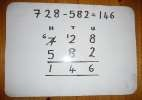 728-582=146
H T U
⁶7 ¹2 8
5 8 2
1 4 6